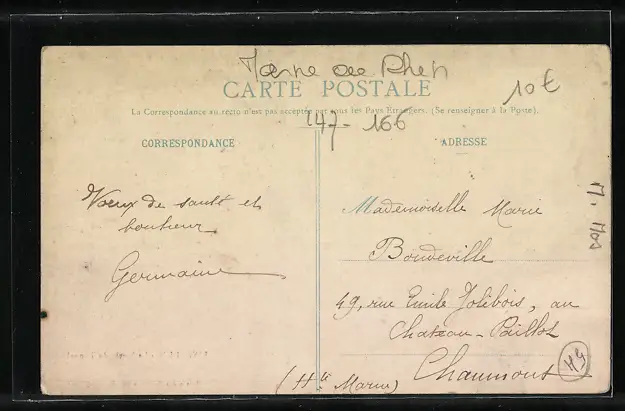 CARTE POSTALE
10€
La Correspondance au recto n'est pas acceptée par tous les Pays Etrangers. (Se renseigner à la Poste).
147-166
CORRESPONDANCE
ADRESSE
Vœux de santé et
bonheur
Germaine
Mademoiselle Marie
Boudeville
49, rue Emile Jolibois, au
Chateau-Paillot
Chaumont
(Hte Marne)